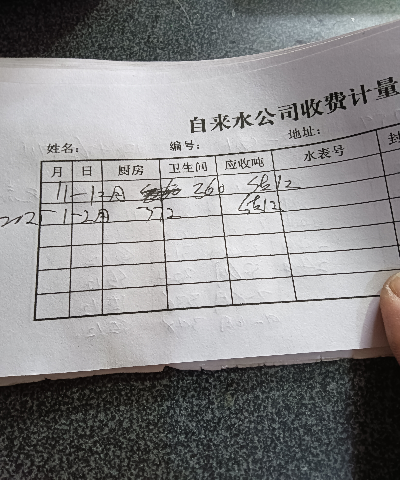 自来水公司收费计量
姓名： 编号： 地址：
月 日 厨房 卫生间 应收吨 水表号 封
11-12月 360 结12
202 1-2月 372 结12